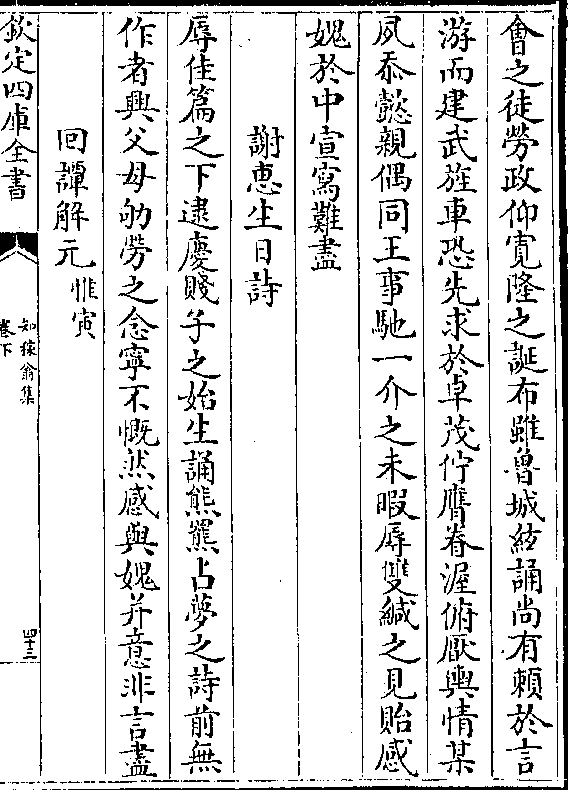 會之徒勞政仰寛隆之誕布雖魯城絃誦尚有頼於言
游而建武旌車恐先求於卓茂佇膺眷渥俯厭輿情某
夙忝懿親偶同王事馳一介之未暇辱雙緘之見貽感
媿於中宣寫難盡
謝惠生日詩
辱佳篇之下逮慶賤子之始生誦熊羆占夢之詩前無
作者興父母劬勞之念寧不慨然感與媿并意非言盡
回譚解元惟寅
欽定四庫全書
知稼翁集
卷下
四十三